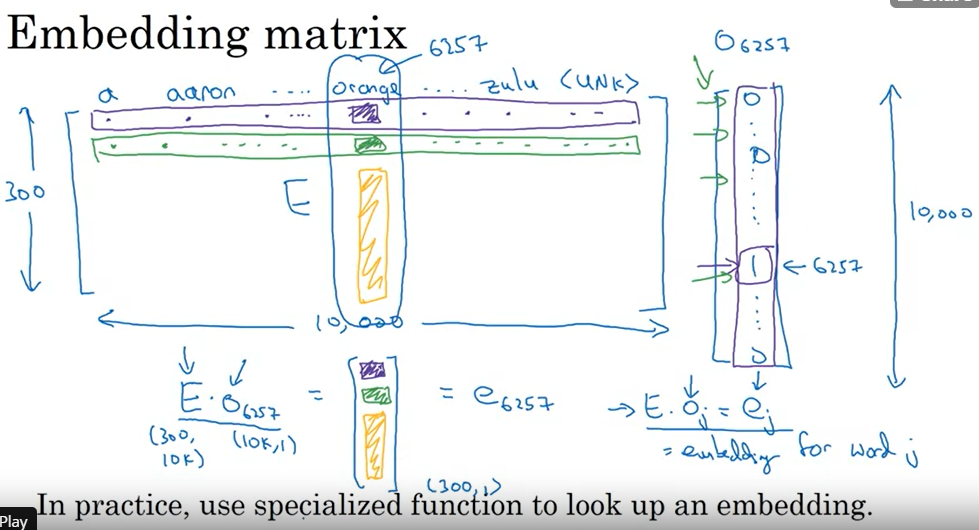 Embedding matrix
6257
O6257
a aaron .... orange ..... zulu <UNK>
0
0
300
E
10,000
1
← 6257
10,000
0
E · O6257 = [ ] = e6257
→ E · Oj = ej
(300, 10K) (10K, 1)
= embedding for word j
(300, 1)
In practice, use specialized function to look up an embedding.
Play